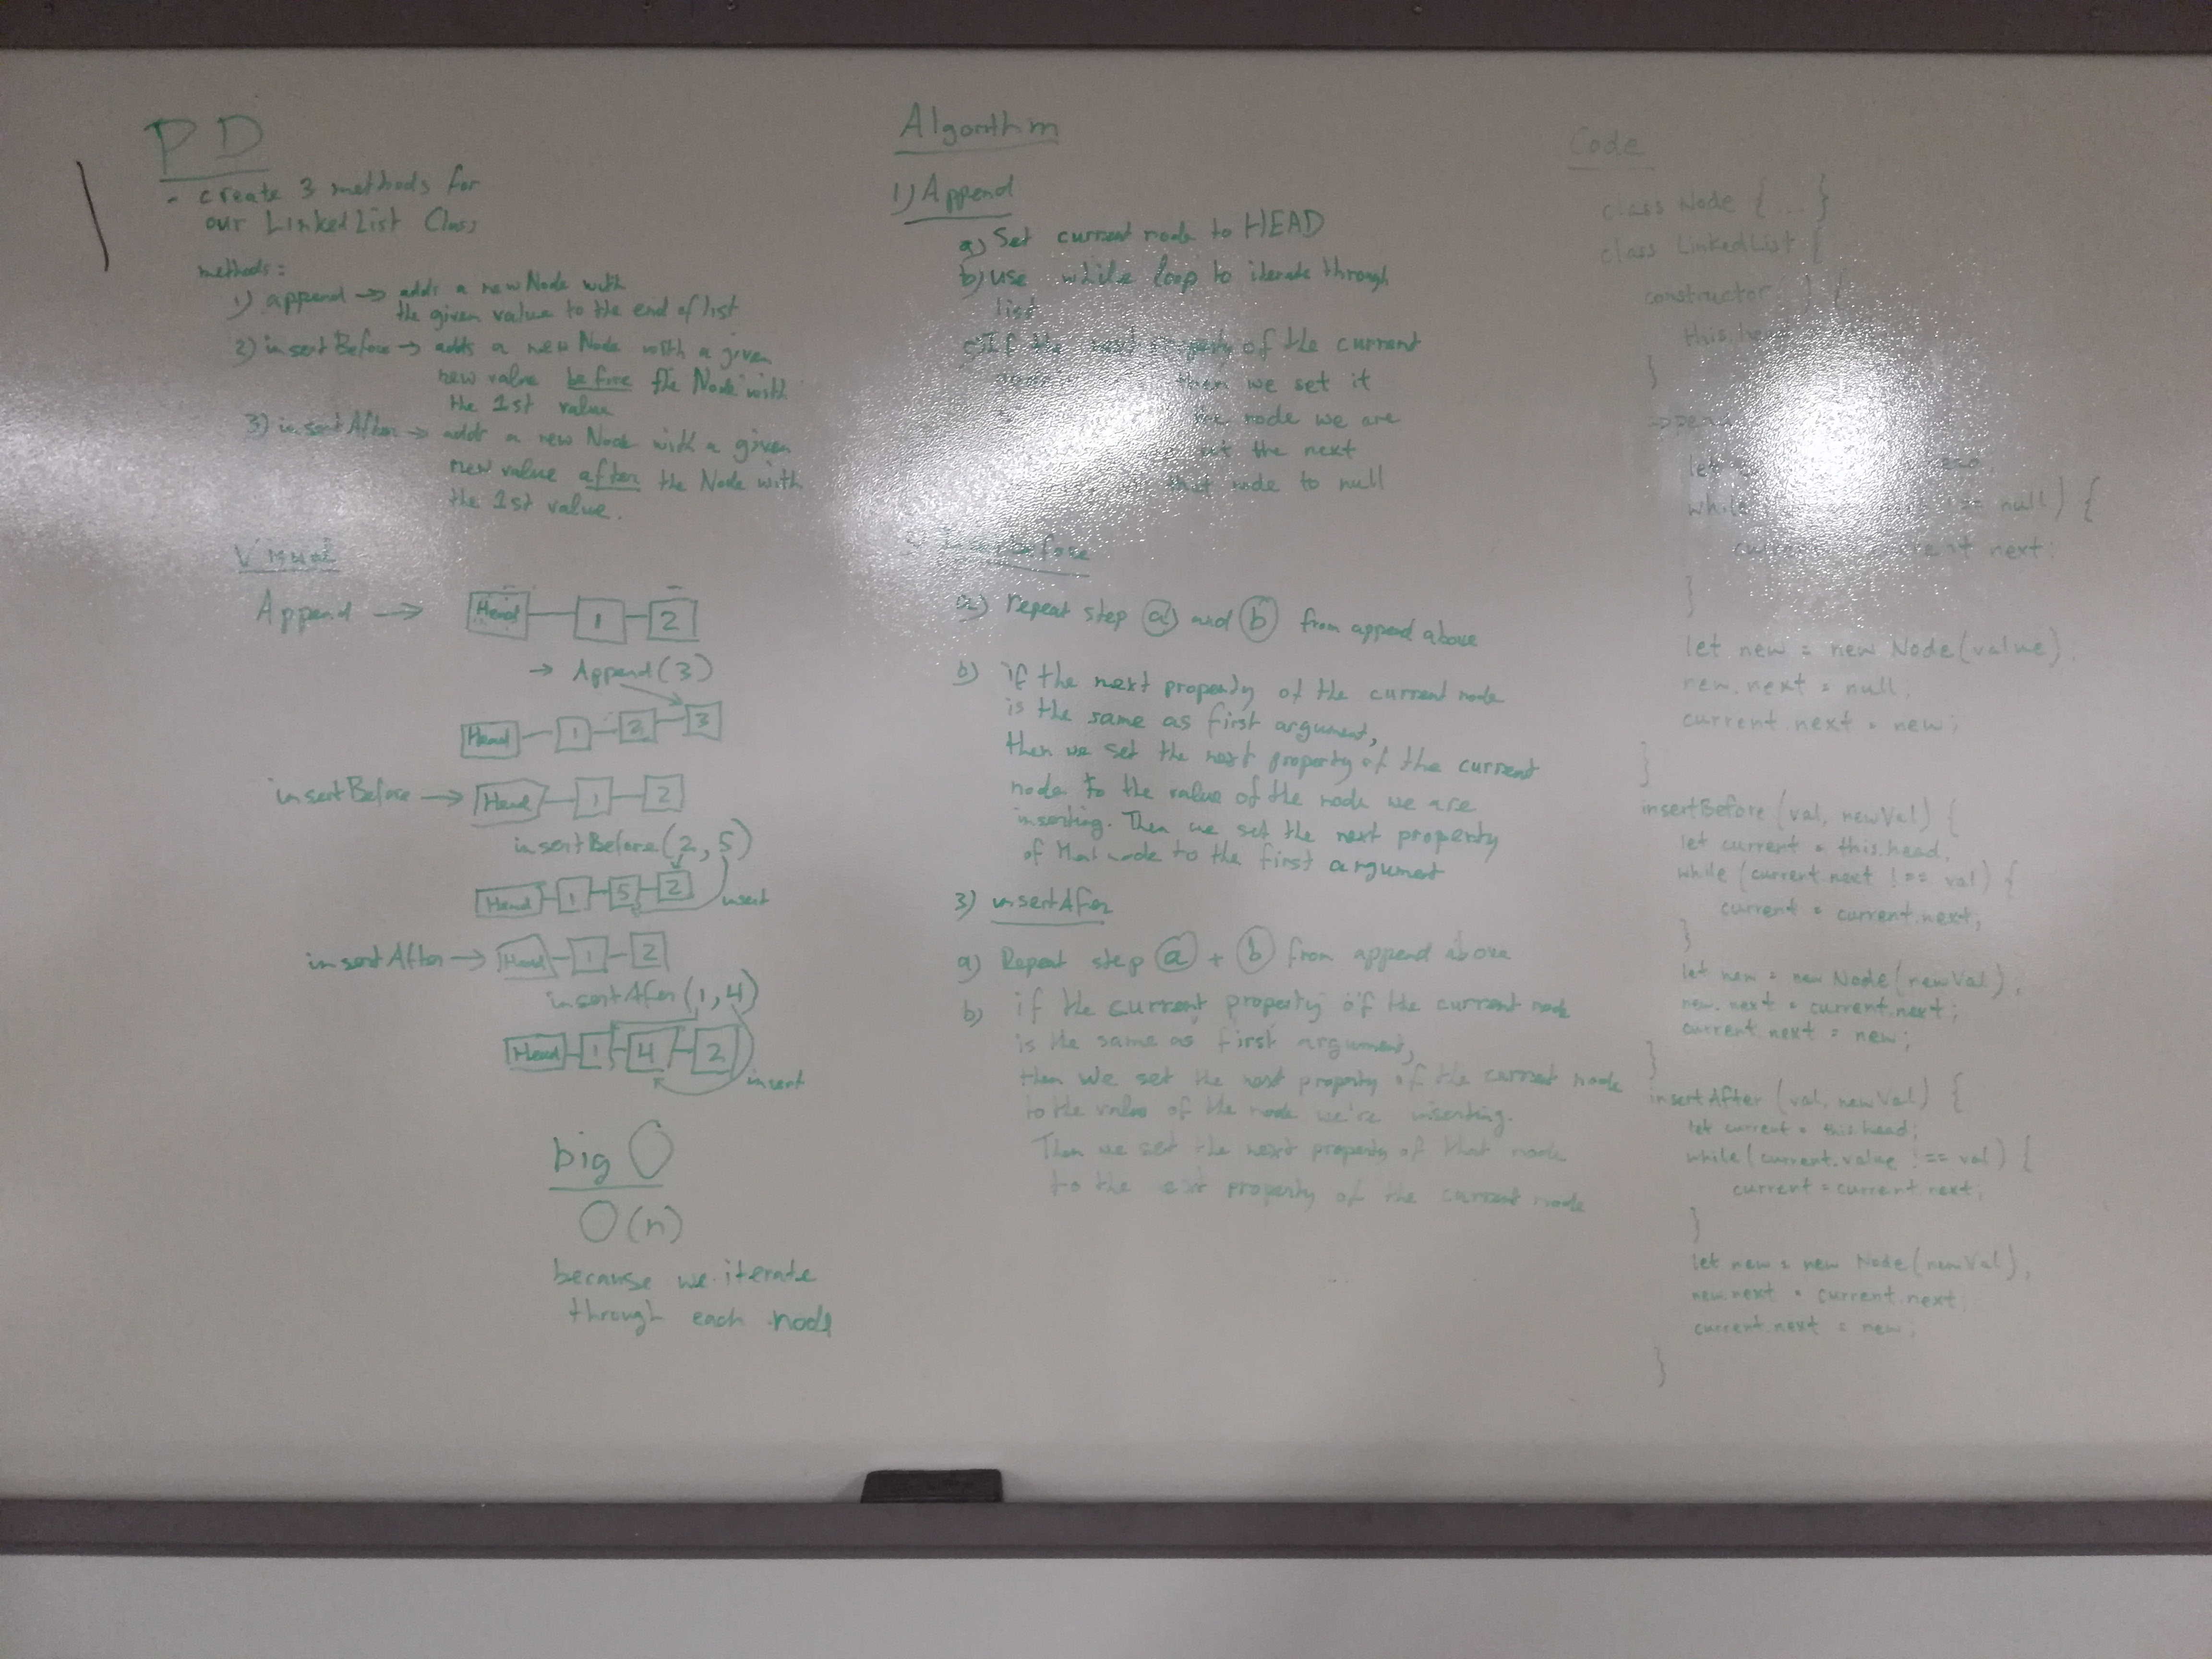 PD
- create 3 methods for
our LinkedList Class
methods:
1) append → adds a new Node with
the given value to the end of list
2) insertBefore → adds a new Node with a given
new value before the Node with
the 1st value
3) insertAfter → adds a new Node with a given
new value after the Node with
the 1st value.
Visual
Append →
Head 1 2
→ Append(3)
Head 1 2 3
insertBefore → Head 1 2
insertBefore(2, 5)
Head 1 5 2 insert
insertAfter → Head 1 2
insertAfer(1, 4)
Head 1 4 2
insert
big O
O(n)
because we iterate
through each node
Algorithm
1) Append
a) Set current node to HEAD
b) use while loop to iterate through
list
c) If the next property of the current
then we set it
the node we are
the next
that node to null
InsertBefore
a) repeat step a and b from append above
b) if the next property of the current node
is the same as first argument,
then we set the next property of the current
node to the value of the node we are
inserting. Then we set the next property
of that node to the first argument
3) insertAfer
a) Repeat step a + b from append above
b) if the current property of the current node
is the same as first argument,
then we set the next property of the current node
to the value of the node we're inserting.
Then we set the next property of that node
to the property of the current node
Code
class Node { ... }
class LinkedList {
constructor ) {
this.
}
append
let
while null) {
next;
}
let new = new Node(value),
new.next = null;
current.next = new;
}
insertBefore (val, newVal) {
let current = this.head,
while (current.next !== val) {
current = current.next;
}
let new = new Node(newVal),
new.next = current.next;
current next = new;
}
insertAfter (val, newVal) {
let current = this.head;
while (current.value !== val) {
current = current next;
}
let new = new Node(newVal),
new.next = current.next;
current.next = new;
}